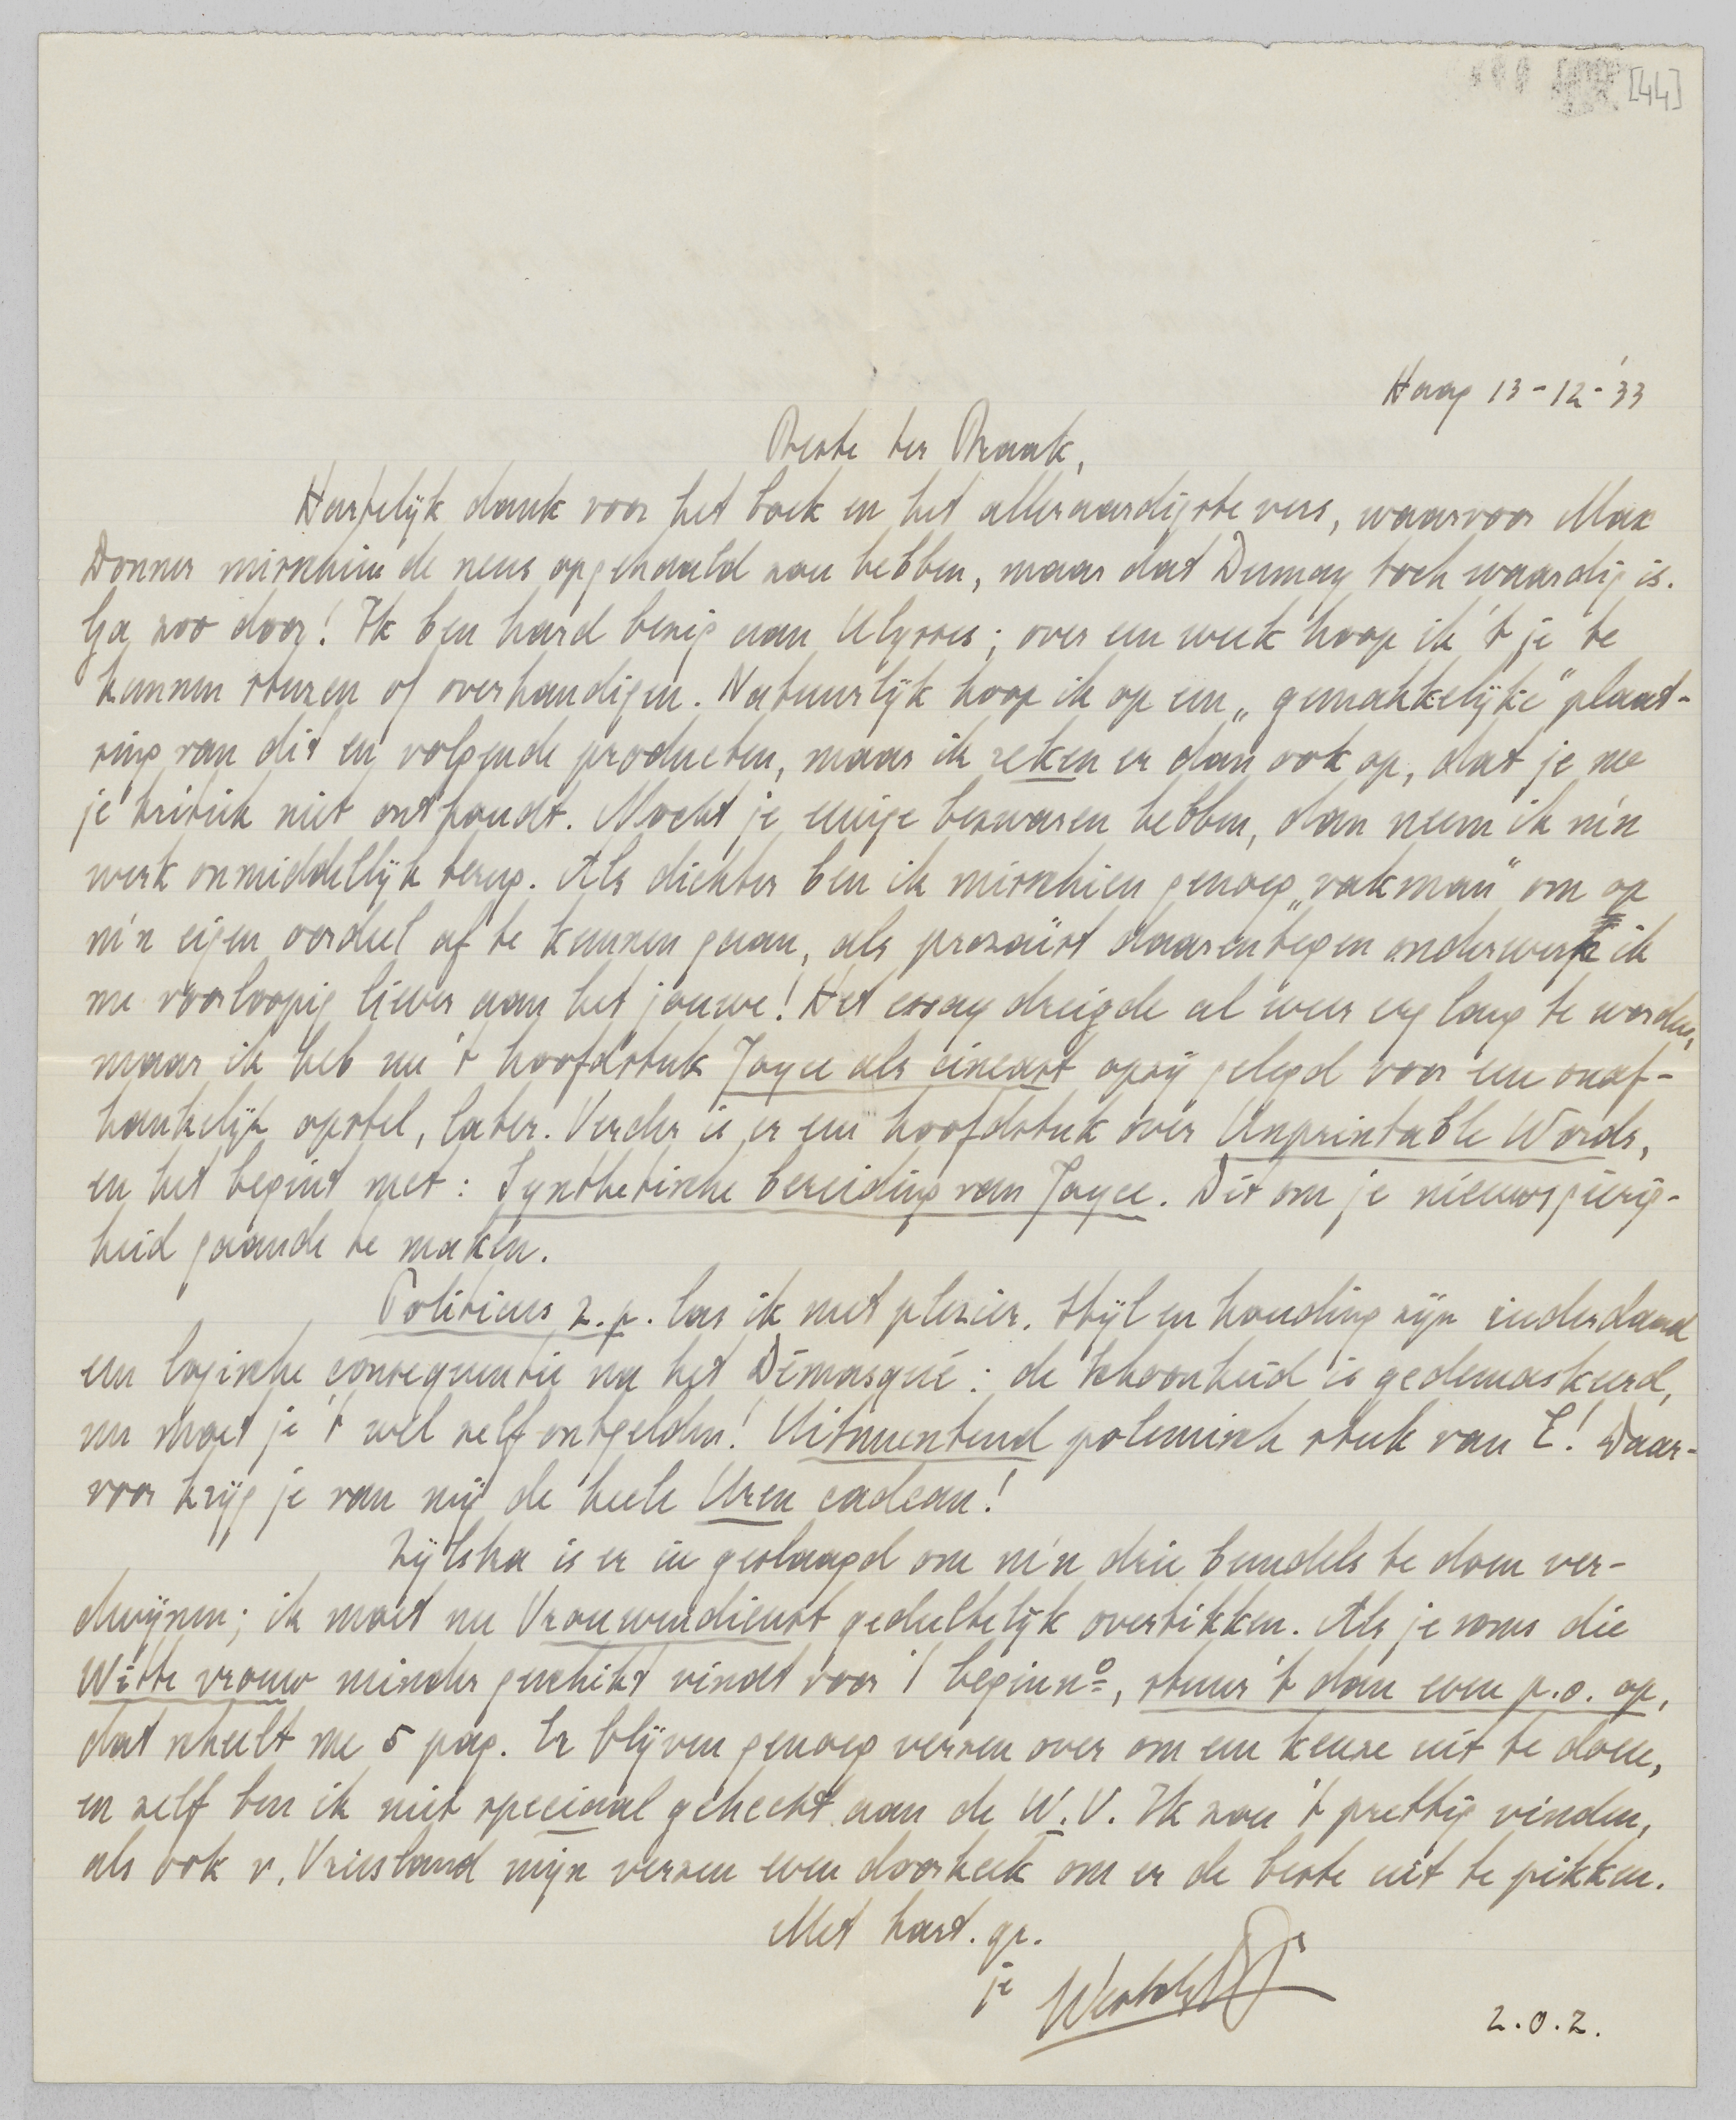 [44]
Haag 13-12-'33
Beste ter Braak,
Hartelijk dank voor het boek en het alleraardigste vers, waarvoor Max
Donner misschien de neus opgehaald zou hebben, maar dat Dumay toch waardig is.
Ga zoo door! Ik ben hard bezig aan Ulysses; over een week hoop ik 't je te
kunnen sturen of overhandigen. Natuurlijk hoop ik op een „gemakkelijke" plaat-
sing van dit en volgende producten, maar ik reken er dan ook op, dat je me
je kritiek niet onthoudt. Mocht je eenige bezwaren hebben, dan neem ik m'n
werk onmiddellijk terug. Als dichter ben ik misschien genoeg „vakman" om op
m'n eigen oordeel af te kunnen gaan, als prozaïst daarentegen onderwerp ik
me voorloopig liever aan het jouwe! Het essay dreigde al weer erg lang te worden,
maar ik heb nu 't hoofdstuk Joyce als cineast opzij gelegd voor een onaf-
hankelijk opstel, later. Verder is er een hoofdstuk over Unprintable Words,
en het begint met: Synthetische bereiding van Joyce. Dit om je nieuwsgierig-
heid gaande te maken.
Politicus z.p. las ik met plezier. Stijl en houding zijn inderdaad
een logische consequentie na het Démasqué: de schoonheid is gedemaskeerd,
nu moet je 't wel zelf ontgelden! Uitmuntend polemisch stuk van E! Daar-
voor krijg je van mij de heele Uren cadeau!
Zijlstra is er in geslaagd om m'n drie bundels te doen ver-
dwijnen; ik moet nu Vrouwendienst gedeeltelijk overtikken. Als je soms die
Witte vrouw minder geschikt vindt voor 't beginno, stuur 't dan even p.o. op,
dat scheelt me 5 pag. Er blijven genoeg verzen over om een keuze uit te doen,
en zelf ben ik niet speciaal gehecht aan de W.V. Ik zou 't prettig vinden,
als ook v. Vriesland mijn verzen even doorkeek om er de beste uit te pikken.
Met hart. gr.
je Vestdijk
z.o.z.